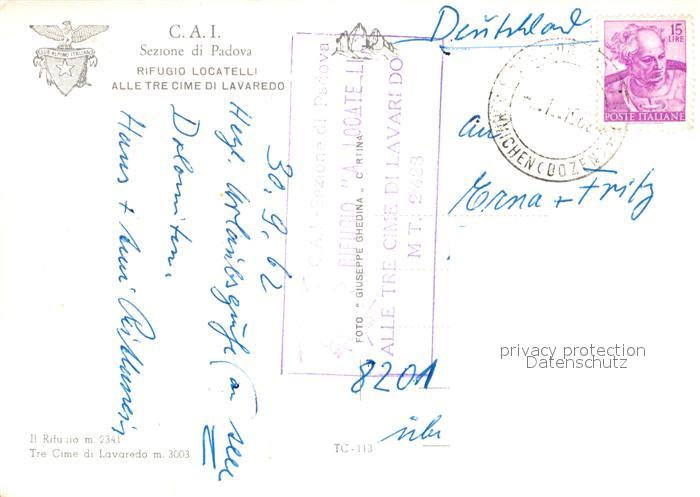 C.A.I.
Sezione di Padova
RIFUGIO LOCATELLI
ALLE TRE CIME DI LAVAREDO
CLUB ALPINO ITALIANO
30.9.62
Herzl. Urlaubsgrüße (an alle
Dolomiten.
Hans +
Il Rifugio m. 2341
Tre Cime di Lavaredo m. 3003
TC-113
FOTO "GIUSEPPE GHEDINA" CORTINA
C.A.I. - Sezione di Padova
RIFUGIO "A. LOCATELLI
ALLE TRE CIME DI LAVAREDO
MT. 2438
Deutschland
15
LIRE
POSTE ITALIANE
INNICHEN (BOZEN)
An
Erna + Fritz
privacy protection
Datenschutz
8201
über